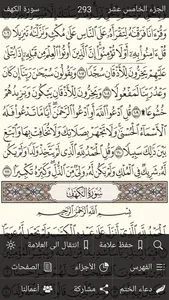 الجزء الخامس عشر
293
سورة الكهف
وَقُرْءَانًا فَرَقْنَٰهُ لِتَقْرَأَهُۥ عَلَى ٱلنَّاسِ عَلَىٰ مُكْثٍ وَنَزَّلْنَٰهُ تَنزِيلًا ١٠٦
قُلْ ءَامِنُوا۟ بِهِۦٓ أَوْ لَا تُؤْمِنُوٓا۟ ۚ إِنَّ ٱلَّذِينَ أُوتُوا۟ ٱلْعِلْمَ مِن قَبْلِهِۦٓ
إِذَا يُتْلَىٰ عَلَيْهِمْ يَخِرُّونَ لِلْأَذْقَانِ سُجَّدًا ١٠٧ وَيَقُولُونَ سُبْحَٰنَ رَبِّنَآ
إِن كَانَ وَعْدُ رَبِّنَا لَمَفْعُولًا ١٠٨ وَيَخِرُّونَ لِلْأَذْقَانِ يَبْكُونَ
وَيَزِيدُهُمْ خُشُوعًا ١٠٩ قُلِ ٱدْعُوا۟ ٱللَّهَ أَوِ ٱدْعُوا۟ ٱلرَّحْمَٰنَ ۖ أَيًّا مَّا تَدْعُوا۟ فَلَهُ
ٱلْأَسْمَآءُ ٱلْحُسْنَىٰ ۚ وَلَا تَجْهَرْ بِصَلَاتِكَ وَلَا تُخَافِتْ بِهَا وَٱبْتَغِ بَيْنَ
ذَٰلِكَ سَبِيلًا ١١٠ وَقُلِ ٱلْحَمْدُ لِلَّهِ ٱلَّذِى لَمْ يَتَّخِذْ وَلَدًا وَلَمْ يَكُن
لَّهُۥ شَرِيكٌ فِى ٱلْمُلْكِ وَلَمْ يَكُن لَّهُۥ وَلِىٌّ مِّنَ ٱلذُّلِّ ۖ وَكَبِّرْهُ تَكْبِيرًۢا ١١١
سُورَةُ الكَهْفِ
بِسْمِ ٱللَّهِ ٱلرَّحْمَٰنِ ٱلرَّحِيمِ
حفظ علامة
انتقال الى العلامة
الفهرس
الأجزاء
الصفحات
دعاء الختم
مشاركة
أعمالنا